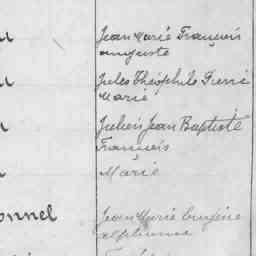 Jean Marie François
auguste
Jules Théophile Pierre
Marie
Julien Jean Baptiste
François
Marie
onnel
Jean Marie Eugène
alphonse